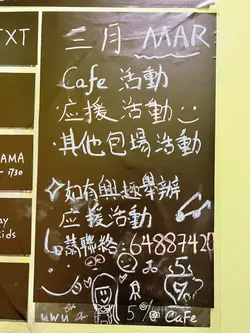 TXT
三月 MAR
Cafe 活動
应援活動
·其他包場活動
如有興趣舉辦
应援活動
請聯絡: 64887420
AMA
1730
ay
ids
uwu
5% @ Cafe